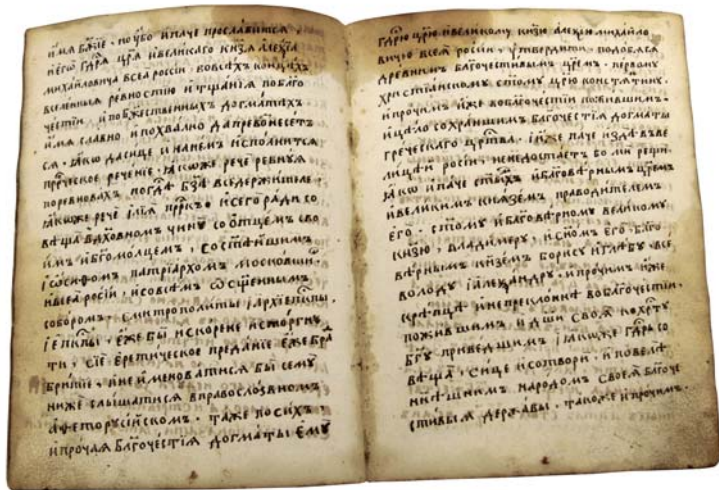 имѧ бж҃їе, по ѹбо иначе прославитсѧ,
и҆ егѡ̀ гдⷭ҇рѧ цр҃ѧ и҆великагѡ кн҃ѕѧ алеѯїа
михаиловича всеа росїи, во всѣхъ концѣхъ
вселенныѧ ревностїю и҆тщанїѧ поблаго
честїи и҆по бжⷭ҇твенныхъ догматѣхъ
и҆мѧ славно и҆похвално да превознесетъ
сѧ. ꙗкѡ да сице и҆ на нем исполнитсѧ
прⷪ҇рческое речение, ꙗкоже рече ревнуѧ
поревновахъ по гдⷭ҇ѣ бз҃ѣ вседержителе,
ꙗкоже рече илїѧ прⷪ҇ркъ. и҆ сего ради со
вѣща вдх҃овномъ чину со ѻтцем сво
имъ и҆бг҃омолцем, со ст҃ѣишимъ
і҆ѡсифомъ патрїархомъ московски
и҆ всеа росїи, и҆ совсем ѡсщ҃еннымъ
собором, с митрополиты і҆ архїепⷭ҇кпы,
і҆ епⷭ҇кпы, еже бы искорене исторгну
ти, сїе еретическое предание еже бра
бритие, и҆ не именоватисѧ бы сему
ниже слышатисѧ в православном
ꙗже то русїйском, таже по сихъ,
и҆ прочаѧ благочестїѧ догматы ему
гдⷭ҇рю цр҃ю и҆ великому кн҃ѕю алеѯїю михаило
вичю всеѧ росїи, ѹтвердити, подобѧсѧ
древнимъ благочестивымъ цр҃емъ. первому
христианскому ст҃ому цр҃ю константину.
и҆ прочимъ иже во благочестїи пожившимъ.
и҆ цѣло сохраншимъ благочестїѧ догматы
греческагѡ црⷭ҇тва. і҆ еже паче издѣ в ве
лицѣи росїи, не недостаетъ бо ми рещи
ꙗкѡ и҆ паче ст҃ыхъ и҆ благовѣрнымъ цр҃емъ
и҆ великимъ кнѧзем праводителемъ
егѡ. ст҃ому и҆ благовѣрному великому
кн҃ѕю, владимеру, и҆ сн҃ом егѡ, благо
вѣрнымъ кн҃ѕемъ борису и҆ глѣбу, все
володу і҆ алеѯандру, и҆ прочим иже
крѣпцѣ и҆ непреклоннѣ во благочестїи.
пожившимъ и҆ дш҃и своѧ ко хрⷭ҇ту
бг҃у приведшимъ ꙗкоже гдⷭ҇рь со
вѣща, сице и҆ сотвори, и҆ повелѣ
ннѣшним народомъ своеѧ благоче
стивыѧ державы, також и҆ прочимъ.